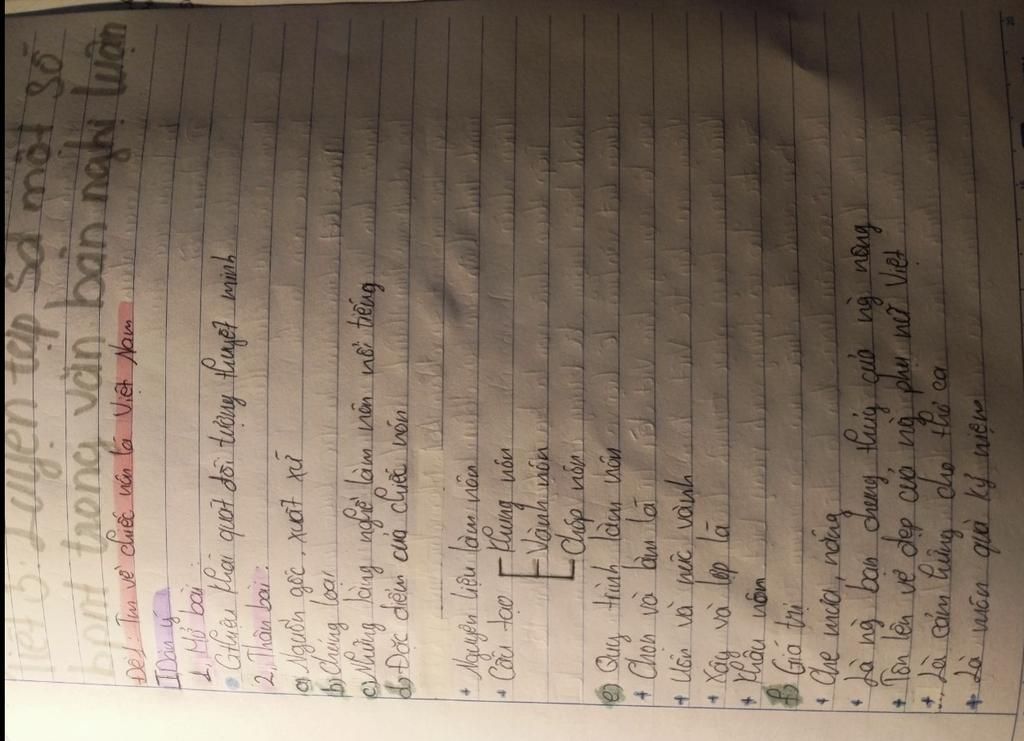 Tiết 3: Luyện tập Sd một số
bpnt trong văn bản nghị luận
Đề1: Tm về chiếc nón lá Việt Nam
I Dàn ý
1. Mở bài
Gthiệu khái quát đối tượng thuyết minh
2. Thân bài.
a) Nguồn gốc, xuất xứ
b) Chủng loại
c) Những làng nghề làm nón nổi tiếng
d) Đặc điểm của chiếc nón
+ Nguyên liệu làm nón
+ Cấu tạo Khung nón
Vành nón
Chóp nón
e) Quy trình làm nón
+ Chọn và làm lá
+ Uốn và nức vành
+ Xây và lợp lá
+ Khâu nón
f) Giá trị
+ Che mưa, nắng
+ Là ng bạn chung thủy của ng nông
+ Tôn lên vẻ đẹp của ng phụ nữ Việt
+ Là cảm hứng cho thơ ca
+ Là món quà kỷ niệm